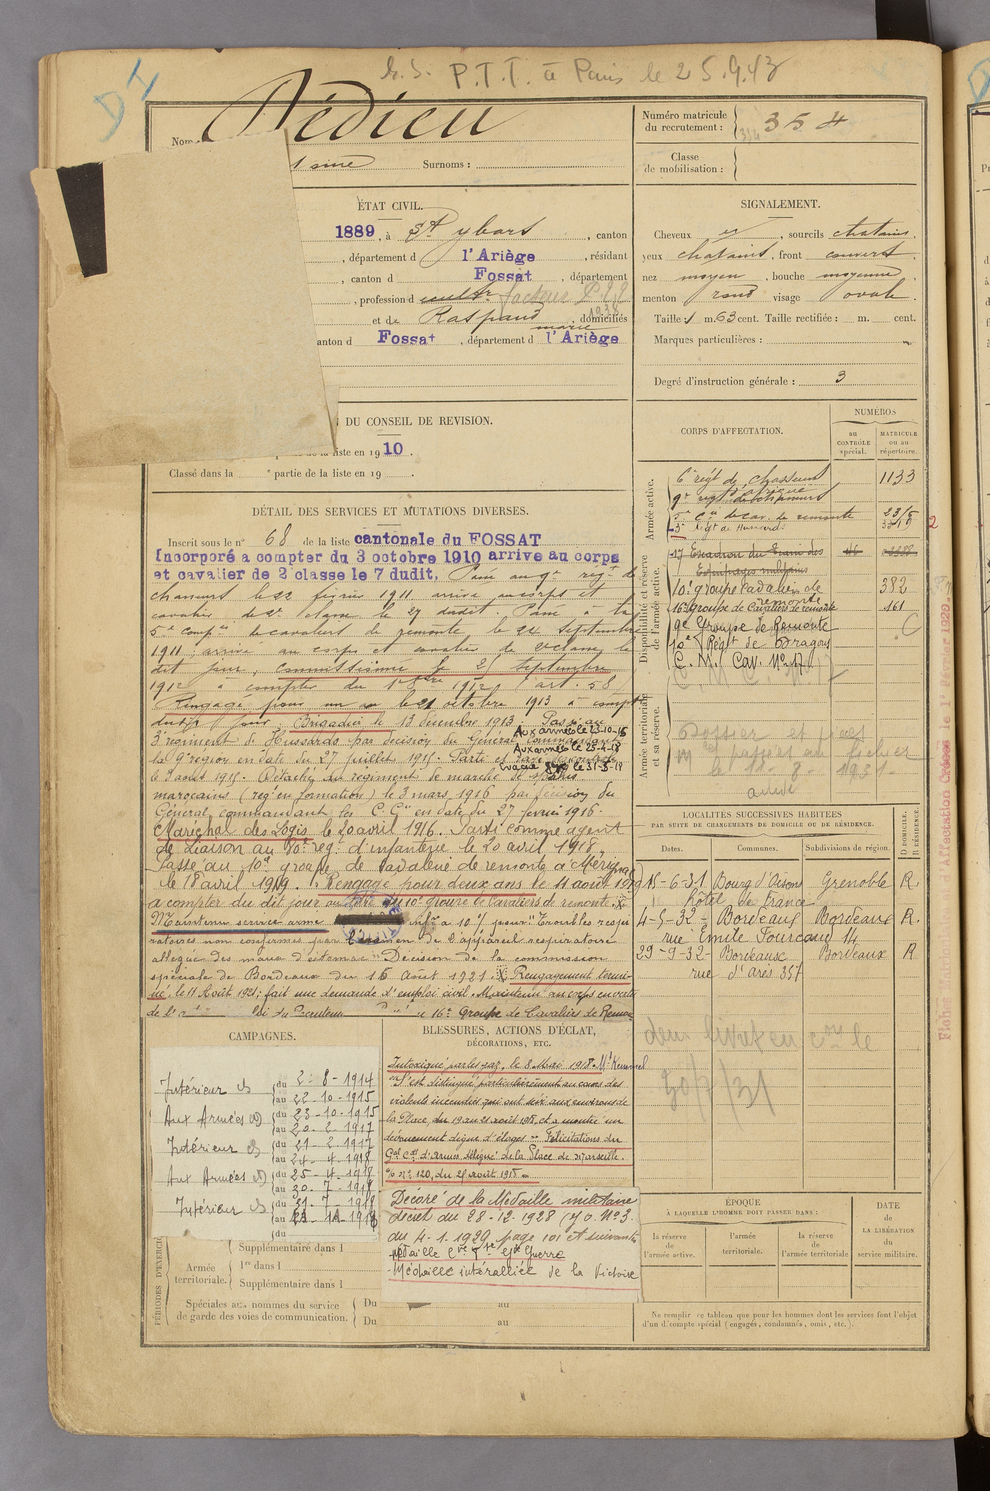 P.T.T. à Paris le 25.9.43
Dédieu
Nom
Surnoms :
ÉTAT CIVIL.
1889, à St Ybars, canton
, département d l'Ariège, résidant
, canton d Fossat, département
, profession d cult facteur
et de Raspaud marie, domiciliés
canton d Fossat, département d l'Ariège
DU CONSEIL DE REVISION.
de la liste en 1910.
Classé dans la partie de la liste en 19 .
DÉTAIL DES SERVICES ET MUTATIONS DIVERSES.
Inscrit sous le n° 68 de la liste cantonale du FOSSAT
Incorporé a compter du 3 octobre 1910 arrive au corps
et cavalier de 2 classe le 7 dudit, Passé au 9e régt de
chasseurs le 22 février 1911 arrivé au corps et
cavalier de 2e classe le 27 dudit. Passé à la
5e compie de cavaliers de remonte le 24 septembre
1911, arrivé au corps et cavalier de 2e classe le
dit jour, commissionné le 25 septembre
1912 à compter du 1er 1912, art. 58,
Rengagé pour un an le 21 octobre 1913 à compter
dudit jour. Brigadier le 13 décembre 1913. Passé au
Aux armées le 23-10-15
3e régiment de Hussards par décision du Général Commandant
Aux armées le 25-4-18
la 9e région en date du 27 juillet 1915. Parti
Evacué le 31-5-19
le 2 août 1915. Détaché au régiment de marche de spahis
marocains (regt en formation) le 3 mars 1916 par décision du
Général commandant les C. Gie en date du 27 février 1916.
Maréchal des Logis le 20 avril 1916. Parti comme agent
de liaison au 80e regt d'infanterie le 20 avril 1918,
Passé au 10e groupe de cavalerie de remonte à Mérignac
le 18 avril 1919. Rengagé pour deux ans le 11 août 1919
à compter du dit jour au 10e groupe de Cavaliers de remonte.
Maintenu service armé à 10 % pour "Troubles respi
ratoires non confirmés par l'examen de l'appareil respiratoire
allègue des maux d'estomac" Décision de la commission
spéciale de Bordeaux du 16 Août 1921. Rengagement termi-
né, le 11 Août 1921; fait une demande d'emploi civil. Maintenu au corps en vertu
de l' 16e groupe de Cavaliers de Remonte
CAMPAGNES.
Intérieur du 2-8-1914
au 22-10-1915
Aux Armées du 23-10-1915
au 20-2-1917
Intérieur du 21-2-1917
au 24-4-1918
Aux Armées du 25-4-1918
au 30-7-1919
Intérieur du 31-7-1919
au
du
PÉRIODES D'EXERCICES
Supplémentaire dans l
Armée territoriale.
1re dans l
Supplémentaire dans l
Spéciales aux hommes du service
de garde des voies de communication.
Du au
Du au
BLESSURES, ACTIONS D'ÉCLAT,
DÉCORATIONS, ETC.
Intoxiqué par les gaz, le 8 Mai 1918. Mt Kemmel
"S'est distingué particulièrement au cours des
violents incendies qui ont sévi aux environs de
la Place, du 19 au 21 août 1918, et a montré un
dévouement digne d'éloges". Félicitations du
Gal Ct d'Armes délégué de la Place de Marseille.
O/ N° 120, du 25 Août 1918
Décoré de la Médaille militaire
décret du 28-12-1928 (J.O. N°3.
du 4-1-1929 page 101 et suivants
Médaille Cve Fse Gde Guerre
-Médaille intéralliée de la Victoire
Numéro matricule
du recrutement : 354
Classe
de mobilisation :
SIGNALEMENT.
Cheveux , sourcils chatains,
yeux chatains, front couvert,
nez moyen, bouche moyenne
menton rond visage ovale.
Taille 1 m. 63 cent. Taille rectifiée : m. cent.
Marques particulières :
Degré d'instruction générale : 3
CORPS D'AFFECTATION.
NUMÉROS
au contrôle spécial.
MATRICULE ou au répertoire.
Armée active.
6e régt de Chasseurs d'afrique 1133
9e regt de chasseurs
5e Cie de cav. de remonte
3e Rgt de Hussards
Disponibilité et réserve de l'armée active.
17 Escadron du train des
Equipages militaires
10e groupe Cavaliers de remonte 382
16e groupe de Cavaliers de remonte 161
9e Groupe de Remonte
10e Régt de Dragons
C. M. Cav. N° 17
C. M. C. N° 17
Armée territoriale et sa réserve.
Dossier et pièces
passées au fichier
le 11-8-1931.
LOCALITÉS SUCCESSIVES HABITÉES
PAR SUITE DE CHANGEMENTS DE DOMICILE OU DE RÉSIDENCE.
Dates. Communes. Subdivisions de région. D DOMICILE. R RÉSIDENCE.
15-6-31 Bourg d'Oisans Grenoble R.
hôtel de France
4-5-32- Bordeaux Bordeaux R.
rue Emile Fourcand 14
29-9-32- Bordeaux Bordeaux R
rue d'Arès 357
30/7/31
ÉPOQUE
À LAQUELLE L'HOMME DOIT PASSER DANS :
la réserve de l'armée active.
l'armée territoriale.
la réserve de l'armée territoriale
DATE de la LIBÉRATION du service militaire.
Ne remplir ce tableau que pour les hommes dont les services font l'objet
d'un décompte spécial (engagés, condamnés, omis, etc.).